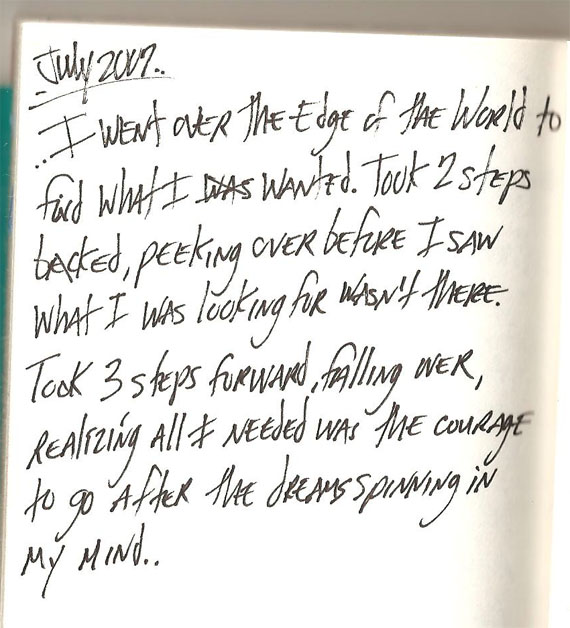 July 2007..
..I went over the Edge of the World to
find what I was wanted. Took 2 steps
backed, peeking over before I saw
what I was looking for wasn't there.
Took 3 steps forward, falling over,
realizing all I needed was the courage
to go after the dreams spinning in
my mind..